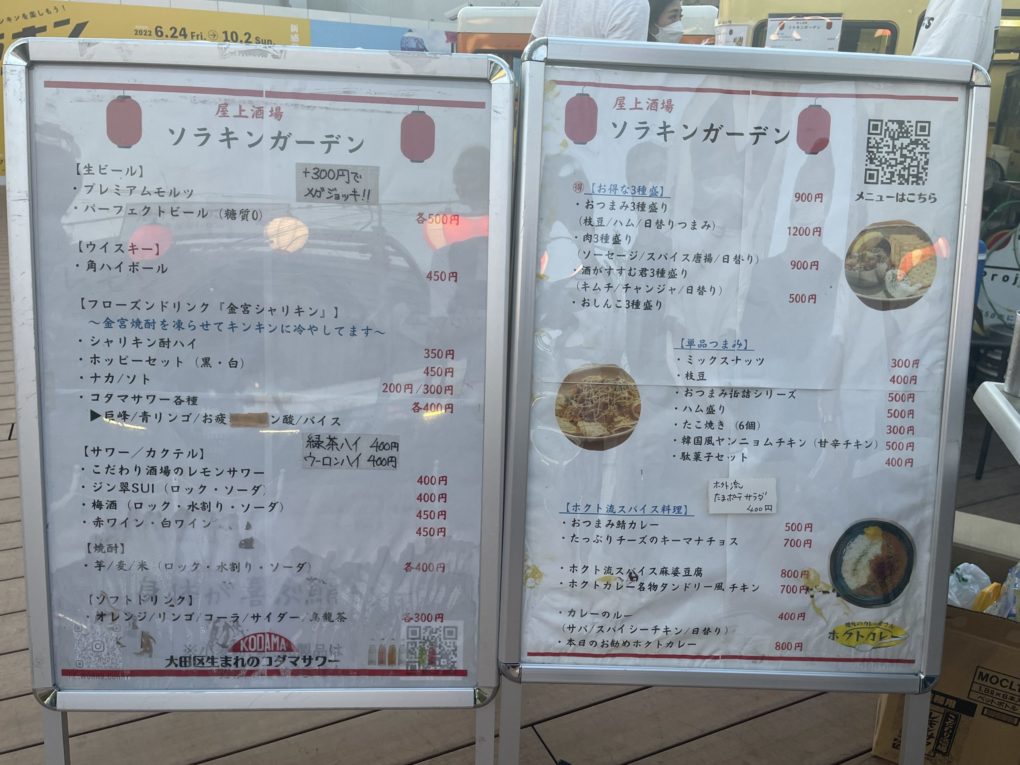 ンキンを楽しもう！
2022 6.24 Fri.→10.2 Sun.
屋上酒場
ソラキンガーデン
【生ビール】
・プレミアムモルツ
・パーフェクトビール（糖質0） 各500円
+300円で
メガジョッキ!!
【ウイスキー】
・角ハイボール 450円
【フローズンドリンク『金宮シャリキン』】
～金宮焼酎を凍らせてキンキンに冷やしてます～
・シャリキン酎ハイ 350円
・ホッピーセット（黒・白） 450円
・ナカ/ソト 200円/300円
・コダマサワー各種 各400円
▶巨峰/青リンゴ/お疲 ン酸/バイス
緑茶ハイ 400円
ウーロンハイ 400円
【サワー/カクテル】
・こだわり酒場のレモンサワー 400円
・ジン翠SUI（ロック・ソーダ） 400円
・梅酒（ロック・水割り・ソーダ） 450円
・赤ワイン・白ワイン 450円
【焼酎】
・芋/麦/米（ロック・水割り・ソーダ） 各400円
【ソフトドリンク】
・オレンジ/リンゴ/コーラ/サイダー/烏龍茶 各300円
KODAMA
大田区生まれのコダマサワー
屋上酒場
ソラキンガーデン
メニューはこちら
得【お得な3種盛】
・おつまみ3種盛り 900円
（枝豆/ハム/日替りつまみ）
・肉3種盛り 1200円
（ソーセージ/スパイス唐揚/日替り）
・酒がすすむ君3種盛り 900円
（キムチ/チャンジャ/日替り）
・おしんこ3種盛り 500円
【単品つまみ】
・ミックスナッツ 300円
・枝豆 400円
・おつまみ缶詰シリーズ 500円
・ハム盛り 500円
・たこ焼き（6個） 300円
・韓国風ヤンニョムチキン（甘辛チキン） 500円
・駄菓子セット 400円
ホクト流
たまポテサラダ
400円
【ホクト流スパイス料理】
・おつまみ鯖カレー 500円
・たっぷりチーズのキーマナチョス 700円
・ホクト流スパイス麻婆豆腐 800円
・ホクトカレー名物タンドリー風チキン 700円
・カレーのルー 400円
（サバ/スパイシーチキン/日替り）
・本日のお勧めホクトカレー 800円
ホクトカレー